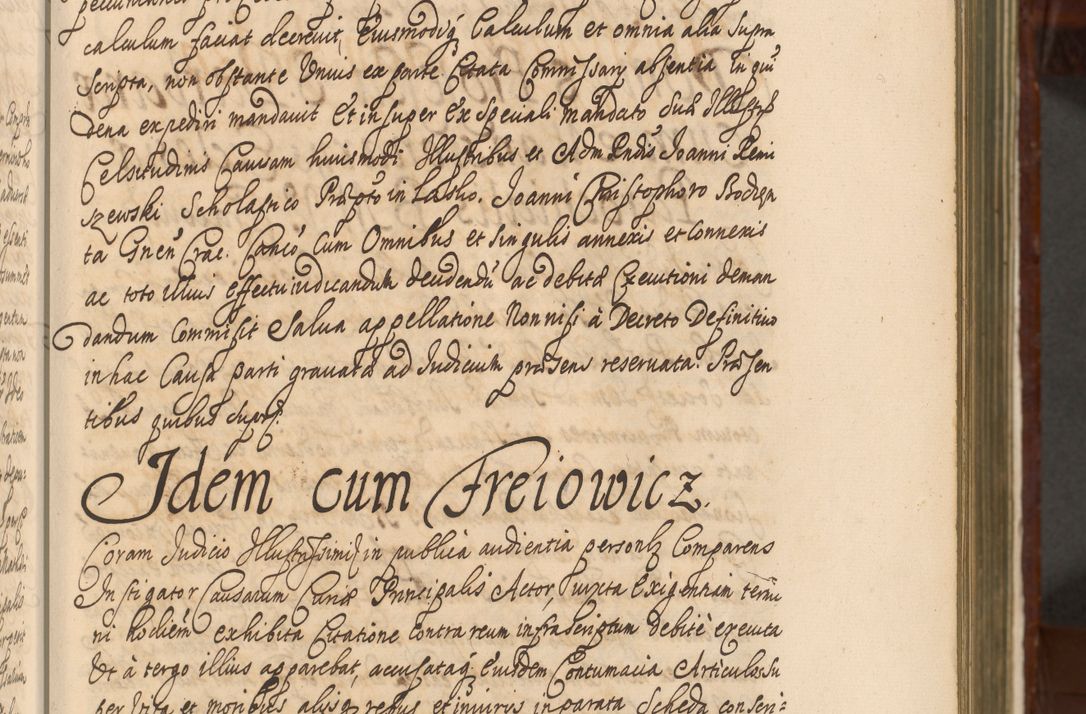 calculum faciat decrevit, Eiusmodiq. Calculum et omnia alia supra
scripta, non obstante Unius ex parte Citata Commissarij absentia in qui
dena expediri mandavit Et insuper Ex speciali mandato Suæ Illustrs
Celsitudinis Causam huiusmodi Illustribus et Adm Rndis Joanni Remi
szewski Scholastico Præpto in Lasko. Joanni Christophoro Bochen
ta Gnen Crac. Canco. Cum Omnibus et singulis annexis et Connexis
ac toto illius effectu iudicandum decidendu ac debitæ Executioni deman
dandum Commisit Salva appellatione Non nisi à Decreto Definitivo
in hac Causa parti gravatæ ad Judicium præsens reservata. Præsen
tibus quibus supra.
Idem cum Freiowicz.
Coram Judicio Illustrissimi in publica audientia personlr Comparens
Instigator Causarum Curiæ Principalis Actor, iuxta Exigentiam termi
ni hodierni exhibita Citatione contra reum infrascriptum debitè executa
Ut à tergo illius apparebat, accusataq. Eiusdem Contumacia Articulos su
per Vita et moribus alijsq. rebus et iniurijs in parata Scheda conscri=